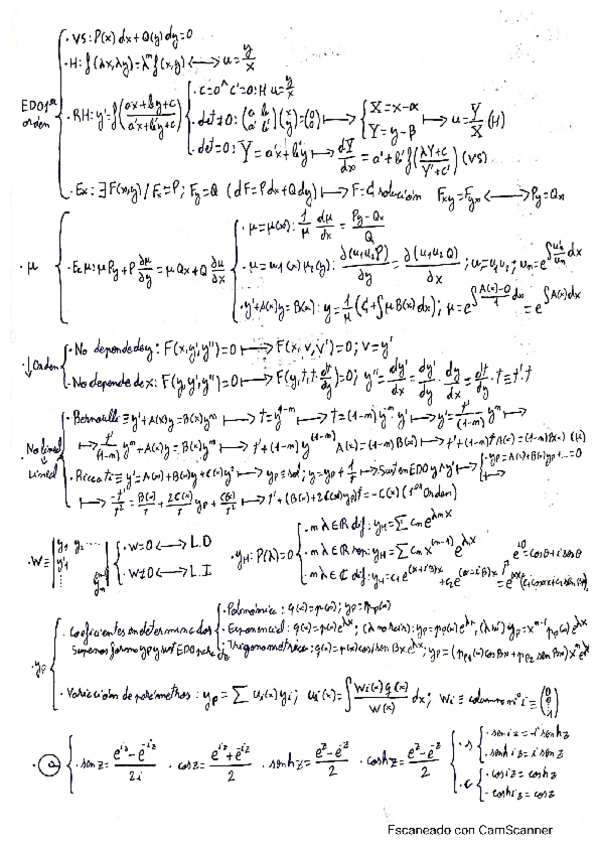 · VS: P(x)dx+Q(y)dy=0
· H: f(λx,λy)=λᵐf(x,y) ⟷ u=y/x
EDO 1er orden
· RH: y'=f((ax+by+c)/(a'x+b'y+c'))
· c=0 ^ c'=0: H u=y/x
· det≠0: (a b; a' b')(x; y)=(0; 0) ⟼ { X=x-α; Y=y-β ⟼ u=Y/X (H)
· det=0: Y=a'x+b'y ⟼ dY/dx = a'+b'f((λY+c)/(Y+c')) (VS)
· Ex: ∃F(x,y)/Fx=P; Fy=Q (dF=Pdx+Qdy) ⟼ F=C, solución Fxy=Fyx ⟷ Py=Qx
· μ
· Ex μ: μPy+P ∂μ/∂y = μQx+Q ∂μ/∂x
· μ=μ(x): 1/μ dμ/dx = (Py-Qx)/Q
· μ=u₁(x)u₂(y): ∂(u₁u₂P)/∂y = ∂(u₁u₂Q)/∂x
· y'+A(x)y=B(x): y=1/μ(C+∫μB(x)dx); μ=e^∫(A(x)-0)/1 dx = e^∫A(x)dx
↓Orden
· No depende de y: F(x,y',y'')=0 ⟼ F(x,v,v')=0; v=y'
· No depende de x: F(y,y',y'')=0 ⟼ F(y,t,t·dt/dy)=0; y''=dy'/dx=dy'/dy·dy/dx=dt/dy·t=t'·t
No lineal ⇓ Lineal
· Bernoulli ≡ y'+A(x)y=B(x)yᵐ ⟼ t=y¹⁻ᵐ ⟼ t'=(1-m)y⁻ᵐy' ⟼ y'=t'/(1-m) yᵐ ⟼
⟼ t'/(1-m) yᵐ+A(x)y=B(x)yᵐ ⟼ t'+(1-m)y^(1-m)A(x)=(1-m)B(x) ⟼ t'+(1-m)tA(x)=(1-m)B(x)
· Riccati ≡ y'=A(x)+B(x)y+C(x)y² ⟼ yp≡sol; y=yp+1/t ⟼ Sust en EDO y ∧ y' ⟼
⟼ -t'/t²=B(x)/t+2C(x)/t yp+C(x)/t² ⟼ t'+(B(x)+2C(x)yp)t=-C(x) (1er Orden)
· W≡|y₁ y₂ ···|
· W=0 ⟷ L.D
· W≠0 ⟷ L.I
yH: P(λ)=0
· m λ∈ℝ dif: yH=∑Cm e^λmx
· m λ∈ℝ rep: yH=∑Cm x^(m-1) e^λx
· m λ∈ℂ dif: yH=c₁e^(α+iβ)x+c₂e^(α-iβ)x=e^αx(c₁cosβx+c₂senβx)
e^iθ=cosθ+isenθ
· yp
· Coeficientes indeterminados
Supones forma yp y sust EDO
· Polinómica: q(x)=p(x); yp=pp(x)
· Exponencial: q(x)=p(x)e^λx; (λ no raiz): yp=pp(x)e^λx, (λ si) yp=x^m pp(x)e^λx
· Trigonométrica: yp=(pp₁(x)cosβx+pp₂senβx)x^m e^λx
· Variación de parámetros: yp=∑ui(x)yi; ui(x)=∫Wi(x)q(x)/W(x) dx; Wi≡columna nº i≡(0; 0; 1)
· senz=(e^iz-e^-iz)/2i · cosz=(e^iz+e^-iz)/2 · senhz=(e^z-e^-z)/2 · coshz=(e^z+e^-z)/2
· s { · seniz=isenhz
· senhiz=isenz
· c { · cosiz=coshz
· coshiz=cosz
Escaneado con CamScanner